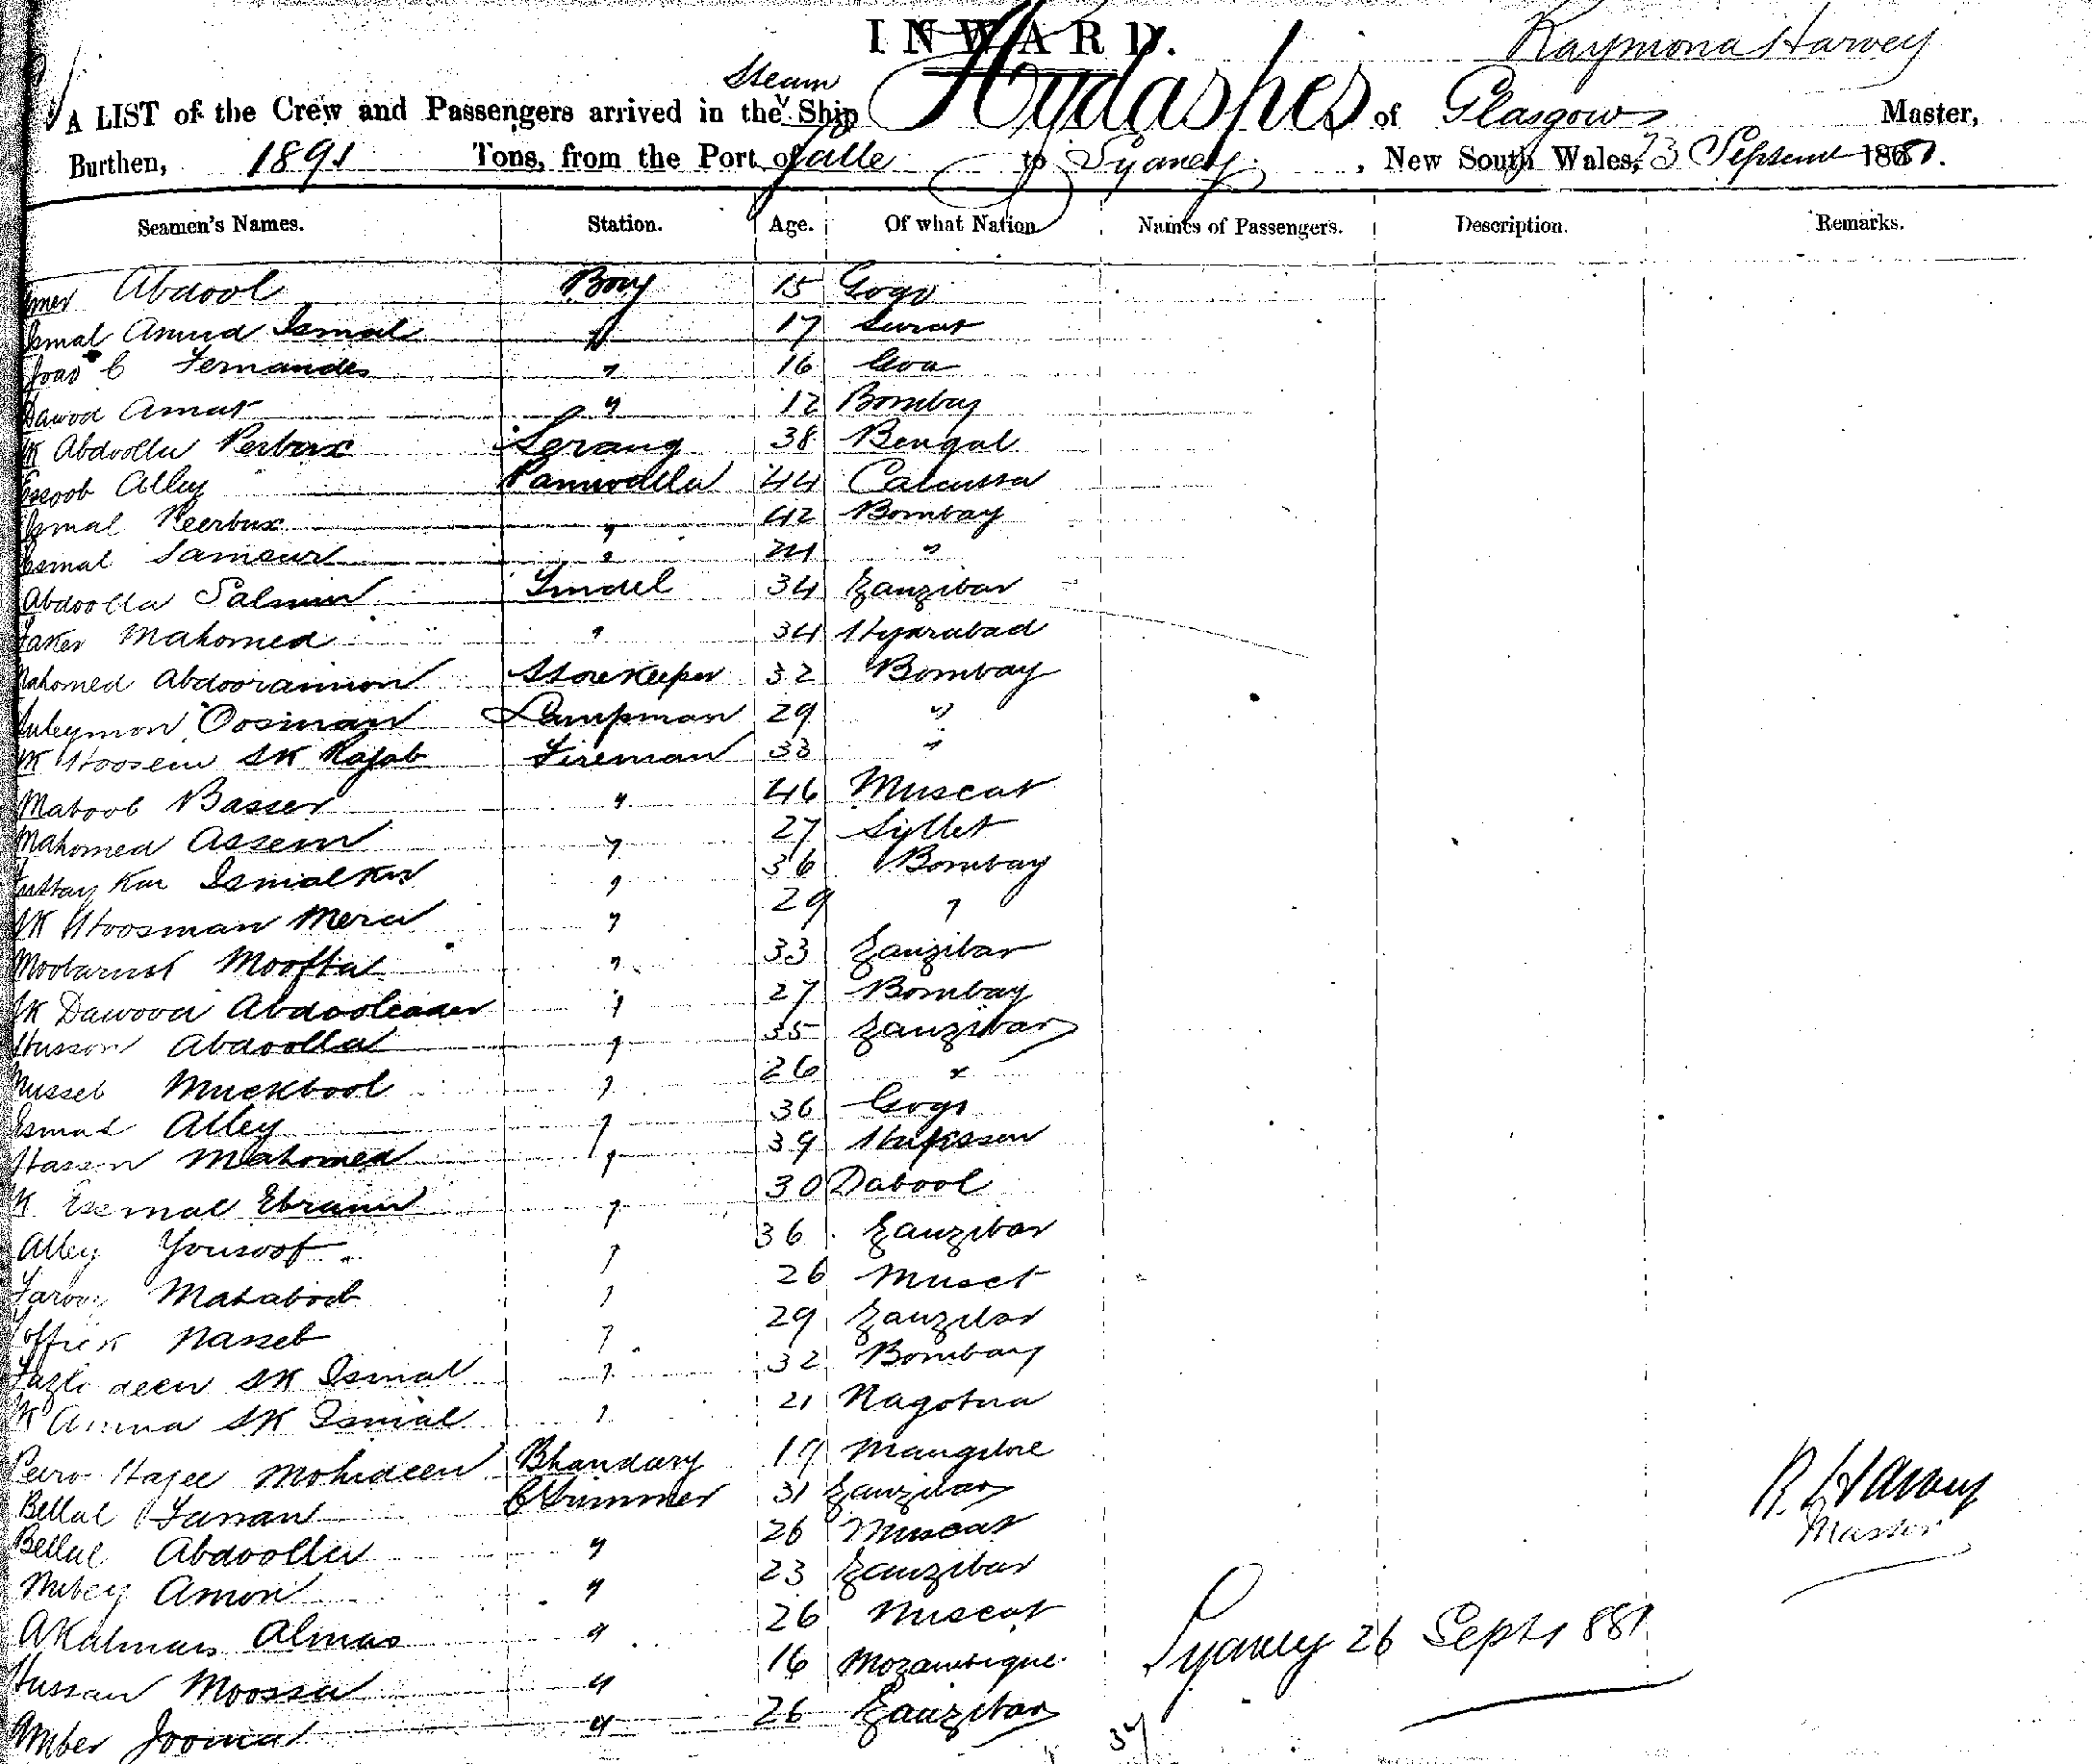 INWARD.
Raymond Harvey
Steam
A LIST of the Crew and Passengers arrived in the Ship Hydaspes of Glasgow Master,
Burthen, 1891 Tons, from the Port of Galle to Sydney, New South Wales, 23 Septem 1881.
Seamen's Names. Station. Age. Of what Nation Names of Passengers. Description. Remarks.
Abdool Boy 15 Gogo
Ismal Amud Ismal " 17 Surat
Joao C Fernandes " 16 Goa
Dawod Amat " 12 Bombay
SK Abdoolla Perbux Serang 38 Bengal
Essoob Alley 44 Calcutta
Esmal Peerbux " 42 Bombay
Esmal " "
Abdoolla Salmin Tindel 34 Zanzibar
Mahomed " 34 Hydrabad
Mahomed Storekeeper 32 Bombay
Suleymon Oosman Lampman 29 "
SK Hoosein SK Rajab Fireman 33 "
Maboob Basser " 46 Muscat
Mahomed Assem " 27 Syllet
Ismalkn " 36 Bombay
SK Hoosman Mera " 29 "
Moofta " 33 Zanzibar
SK Dawood Abdooleader " 27 Bombay
Husson Abdoolla " 35 Zanzibar
Musseb Muckbool " 26 "
Esmal Alley " 36 Gogo
Hassen Mahomed " 39
SK Essmal Ebraim " 30 Dabool
Alley Yousoof " 36 Zanzibar
Mahabood " 26 Musct
Toffick Nasseb " 29 Zanzibar
Fazldeen SK Ismal " 32 Bombay
SK Amna SK Ismal " 21 Nagotna
Peiro Hajee Mohideen Bhandary 19 Mangelore
Bellal Farran C Trimmer 31 Zanzibar
Bellal Abdoolla " 26 Muscat
Amon " 23 Zanzibar
Almas " 26 Muscat
Hussan Moossa " 16 Mozambique
Amber Jooma " 26 Zanzibar
R. Harvey
Master
Sydney 26 Sept 1881
37